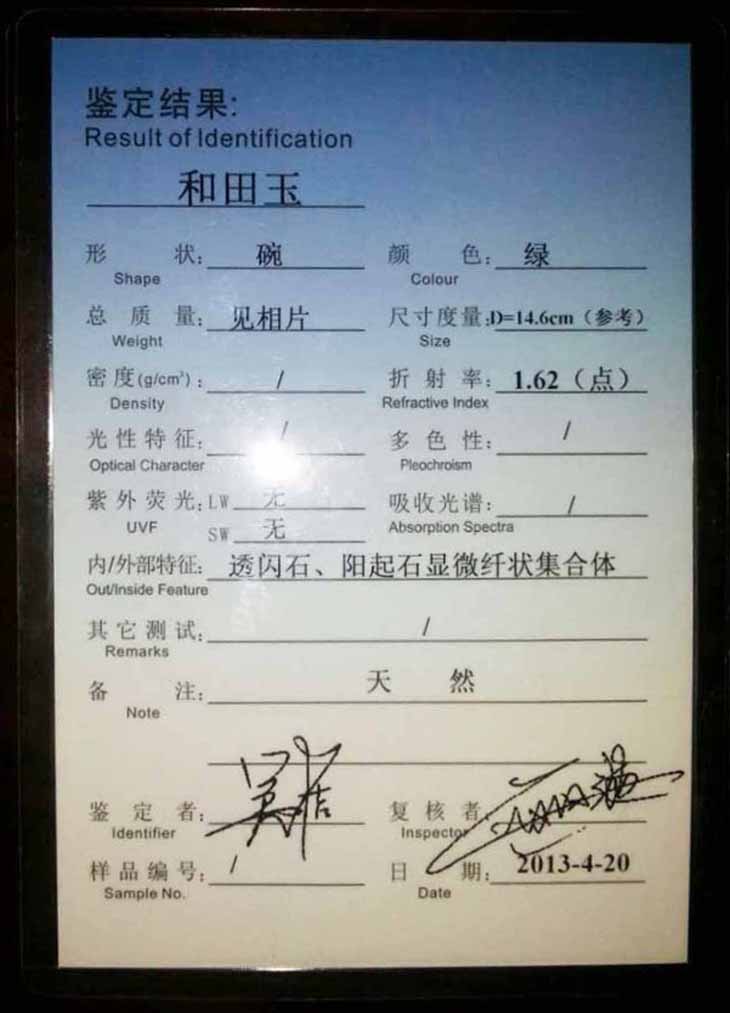 鉴定结果:
Result of Identification
和田玉
形 状: 碗 颜 色: 绿
Shape Colour
总 质 量: 见相片 尺寸度量: D=14.6cm（参考）
Weight Size
密度(g/cm³): / 折 射 率: 1.62（点）
Density Refractive Index
光性特征: / 多 色 性: /
Optical Character Pleochroism
紫外荧光: LW 无 吸收光谱: /
UVF SW 无 Absorption Spectra
内/外部特征: 透闪石、阳起石显微纤状集合体
Out/Inside Feature
其它测试: /
Remarks
备 注: 天 然
Note
鉴 定 者: 复 核 者
Identifier Inspector
样品编号: / 日 期: 2013-4-20
Sample No. Date